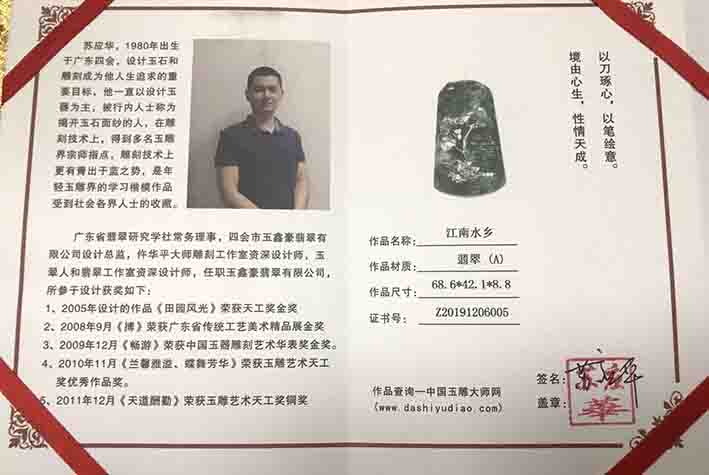 苏应华，1980年出生
于广东四会，设计玉石和
雕刻成为他人生追求的重
要目标，他一直以设计玉
器为主，被行内人士称为
揭开玉石面纱的人，在雕
刻技术上，得到多名玉雕
界宗师指点，雕刻技术上
更有青出于蓝之势，是年
轻玉雕界的学习楷模作品
受到社会各界人士的收藏。
广东省翡翠研究学社常务理事，四会市玉鑫豪翡翠有
限公司设计总监，仵华平大师雕刻工作室资深设计师、玉
翠人和翡翠工作室资深设计师，任职玉鑫豪翡翠有限公司，
所参于设计获奖如下：
1、2005年设计的作品《田园风光》荣获天工奖金奖
2、2008年9月《搏》荣获广东省传统工艺美术精品展金奖
3、2009年12月《畅游》荣获中国玉器雕刻艺术华表奖金奖。
4、2010年11月《兰馨雅溢、蝶舞芳华》荣获玉雕艺术天工
奖优秀作品奖。
5、2011年12月《天道酬勤》荣获玉雕艺术天工奖铜奖
以刀琢心，以笔绘意。
境由心生，性情天成。
作品名称：江南水乡
作品材质：翡翠（A）
作品尺寸：68.6*42.1*8.8
证书号：Z20191206005
作品查询—中国玉雕大师网
(www.dashiyudiao.com)
签名：苏应华
盖章：苏应華